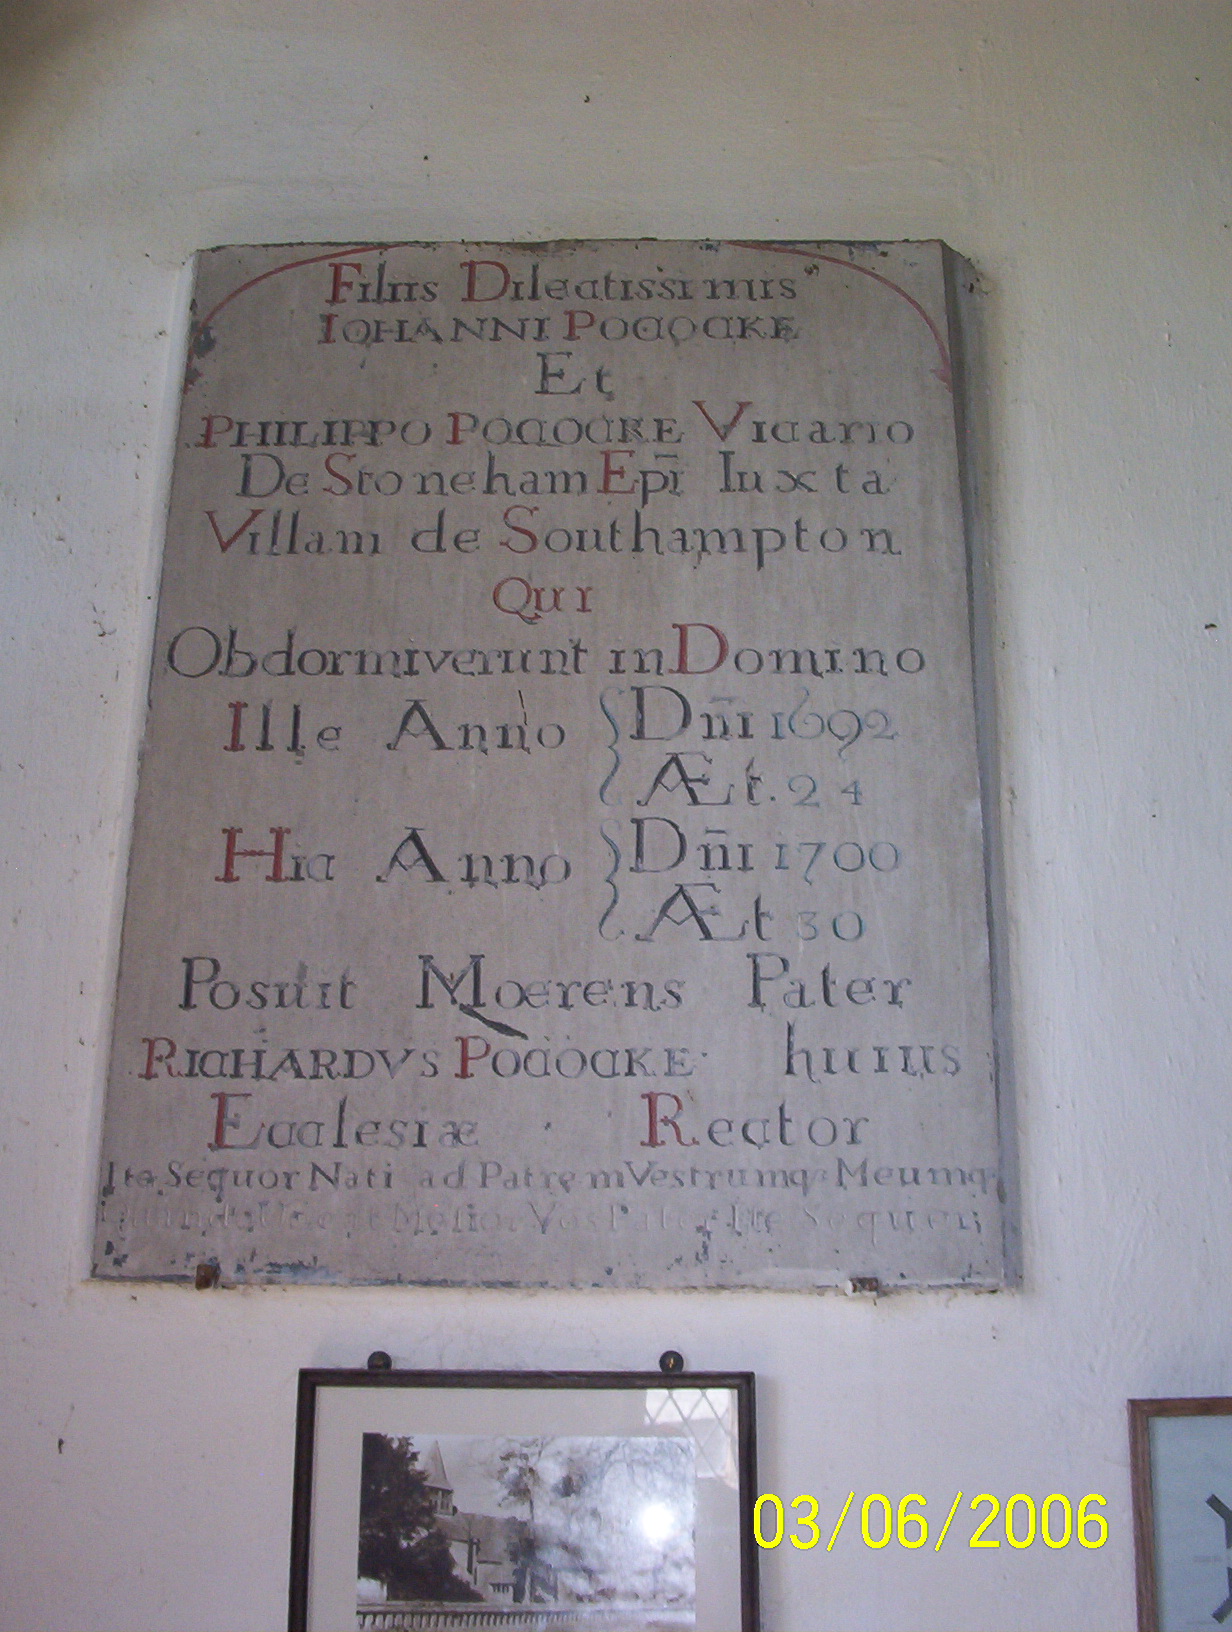 Filiis Dilectissimis
IOHANNI POCOCKE
Et
PHILIPPO POCOCKE Vicario
De Stoneham Epī Iuxta
Villam de Southampton
Qui
Obdormiverunt in Domino
Ille Anno { Dn̄i 1692
Æt. 24
Hic Anno { Dn̄i 1700
Æt 30
Posuit Moerens Pater
RICHARDVS POCOCKE huius
Ecclesiæ Rector
Ite Sequor Nati ad Patrem Vestrumq: Meumq:
Vos Pater Ite Sequor
03/06/2006